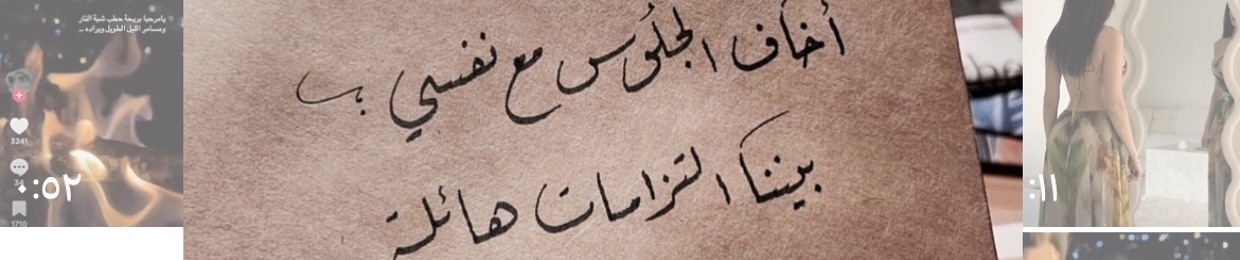 يامرحبا بريحة حطب شبة النار
ومسامر الليل الطويل وبراده ..
أخاف الجلوس مع نفسي
بيننا التزامات هائلة
3241
34
1710
٠:٥٢
:١١